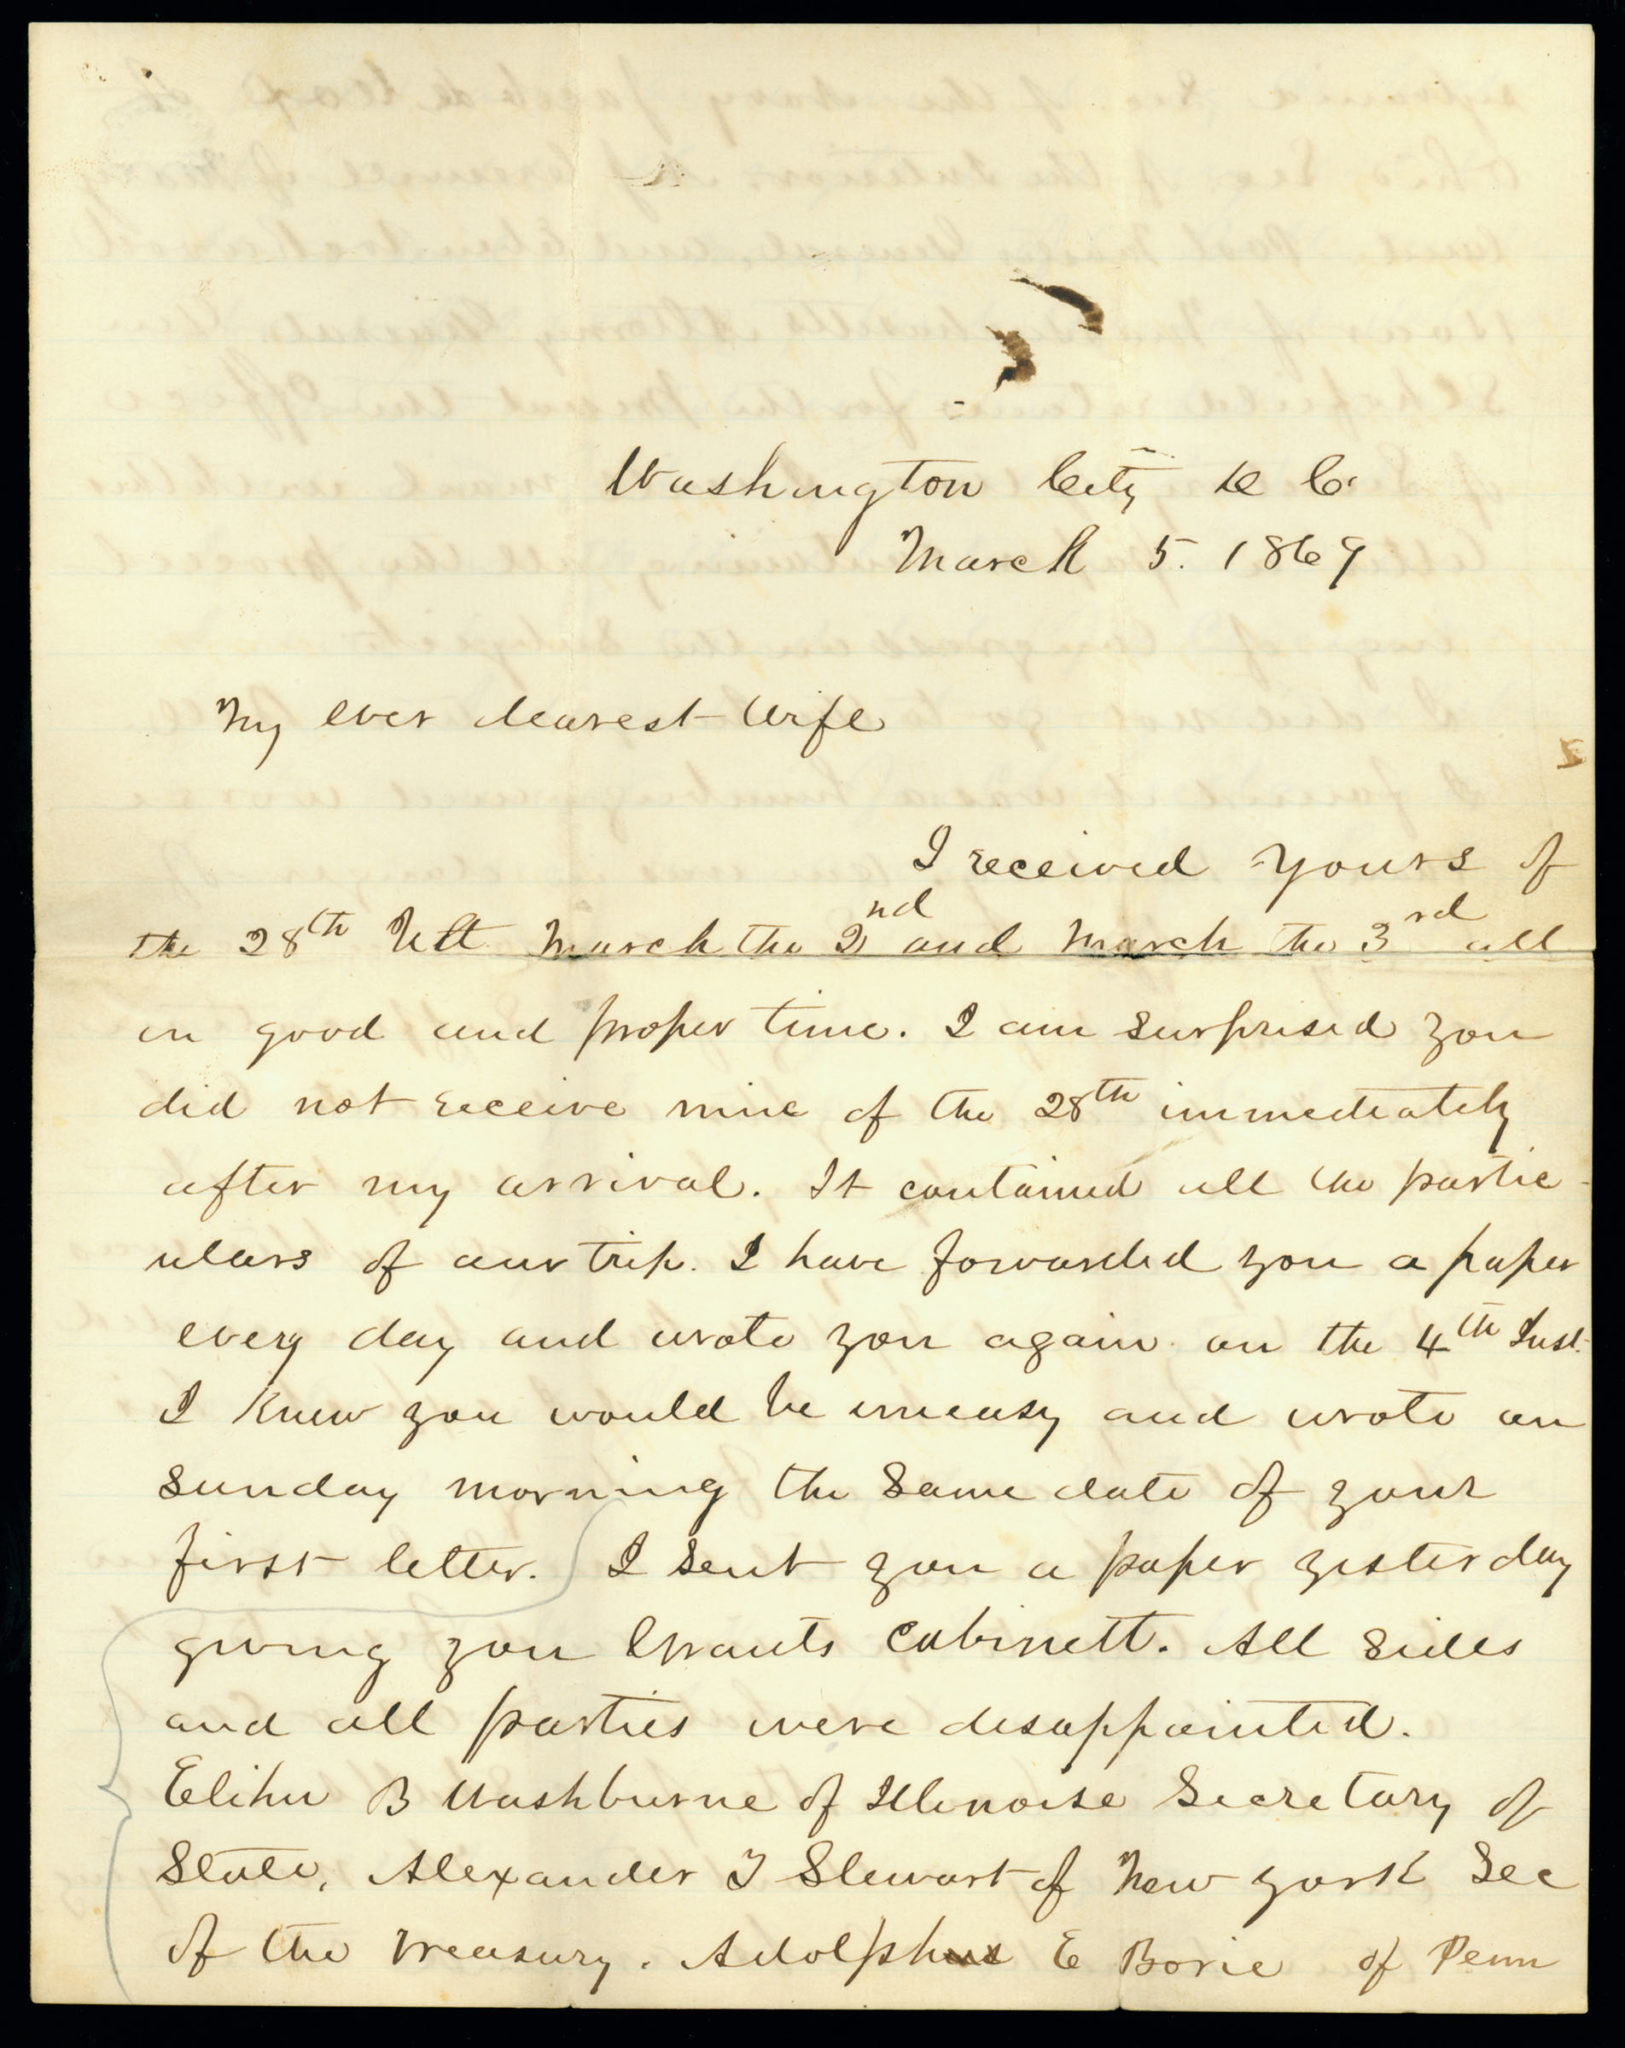 Washington City D C.
March 5. 1869
My ever dearest Wife
I received yours of
the 28th Ult March the 2nd and March the 3rd all
in good and proper time. I am surprised you
did not receive mine of the 28th immediately
after my arrival. It contained all the partic-
ulars of our trip. I have forwarded you a paper
every day and wrote you again on the 4th Inst.
I knew you would be uneasy and wrote on
Sunday morning the same date of your
first letter. I sent you a paper yesterday
giving you Grants Cabinett. All sides
and all parties were disappointed.
Elihu B Washburne of Illinoise Secretary of
State, Alexander T Stewart of New York Sec
of the Treasury. Adolphus E Borie of Penn